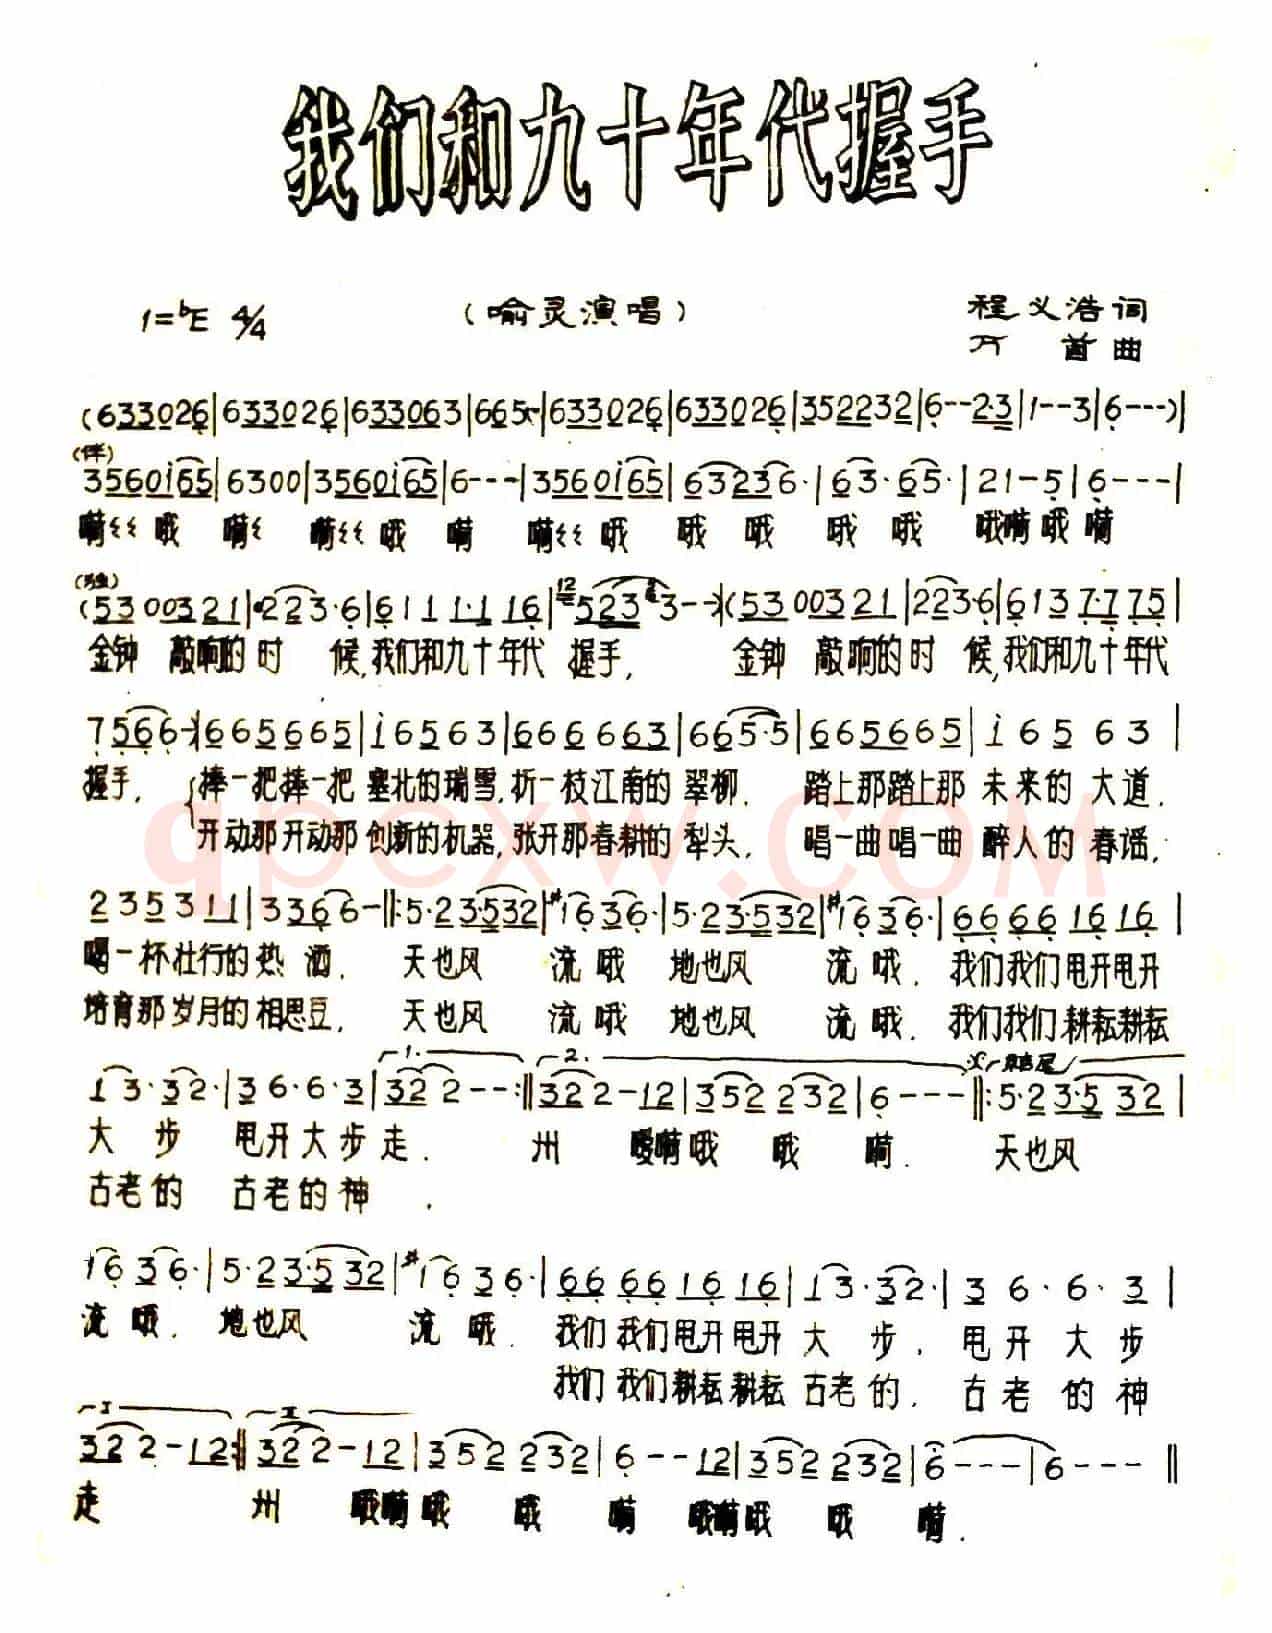 我们和九十年代握手
1=ᵇE 4/4 （喻灵演唱） 程义浩词
万首曲
(633026|633026|633063|665-|633026|633026|352232|6--2·3|1--3|6---)|
(伴)
3560i65|6300|3560i65|6---|3560i65|63236·|63·65·|21-5|6---|
嗬〻哦 嗬〻 嗬〻哦 嗬 嗬〻哦 哦 哦 哦 哦 哦嗬哦嗬
(独)
(5300321|223·6|6111·116|5233--|(5300321|223·6|6137·775|
金钟 敲响的时 候,我们和九十年代 握手, 金钟 敲响的时 候,我们和九十年代
7566-|6656665|i6563|6666663|6655·5|6656665|i6563|
握手, 捧一把捧一把 塞北的瑞雪,折一枝江南的 翠柳. 踏上那踏上那 未来的 大道,
开动那开动那 创新的机器,张开那春耕的 犁头, 唱一曲唱一曲 醉人的 春谣,
qpcxw.com
235311|3366-‖:5·23·532|#1636·|5·23·532|#1636·|66661616|
喝一杯壮行的热 酒, 天也风 流哦 地也风 流哦, 我们我们甩开甩开
培育那岁月的相思豆, 天也风 流哦 地也风 流哦, 我们我们耕耘耕耘
1. 2. 结尾
13·32·|36·6·3|322--:‖322-12|352232|6---‖:5·23·532|
大步 甩开大步走. 州 嗳嗬哦 哦 嗬. 天也风
古老的 古老的神 .
1636·|5·23·532|#1636·|66661616|13·32·|36·6·3|
流哦, 地也风 流哦. 我们我们甩开甩开 大步, 甩开大步
我们我们耕耘耕耘 古老的, 古老的神
I II
322-12:‖322-12|352232|6--12|352232|6---|6---‖
走 州 哦嗬哦 哦 嗬 哦嗬哦 哦 嗬.